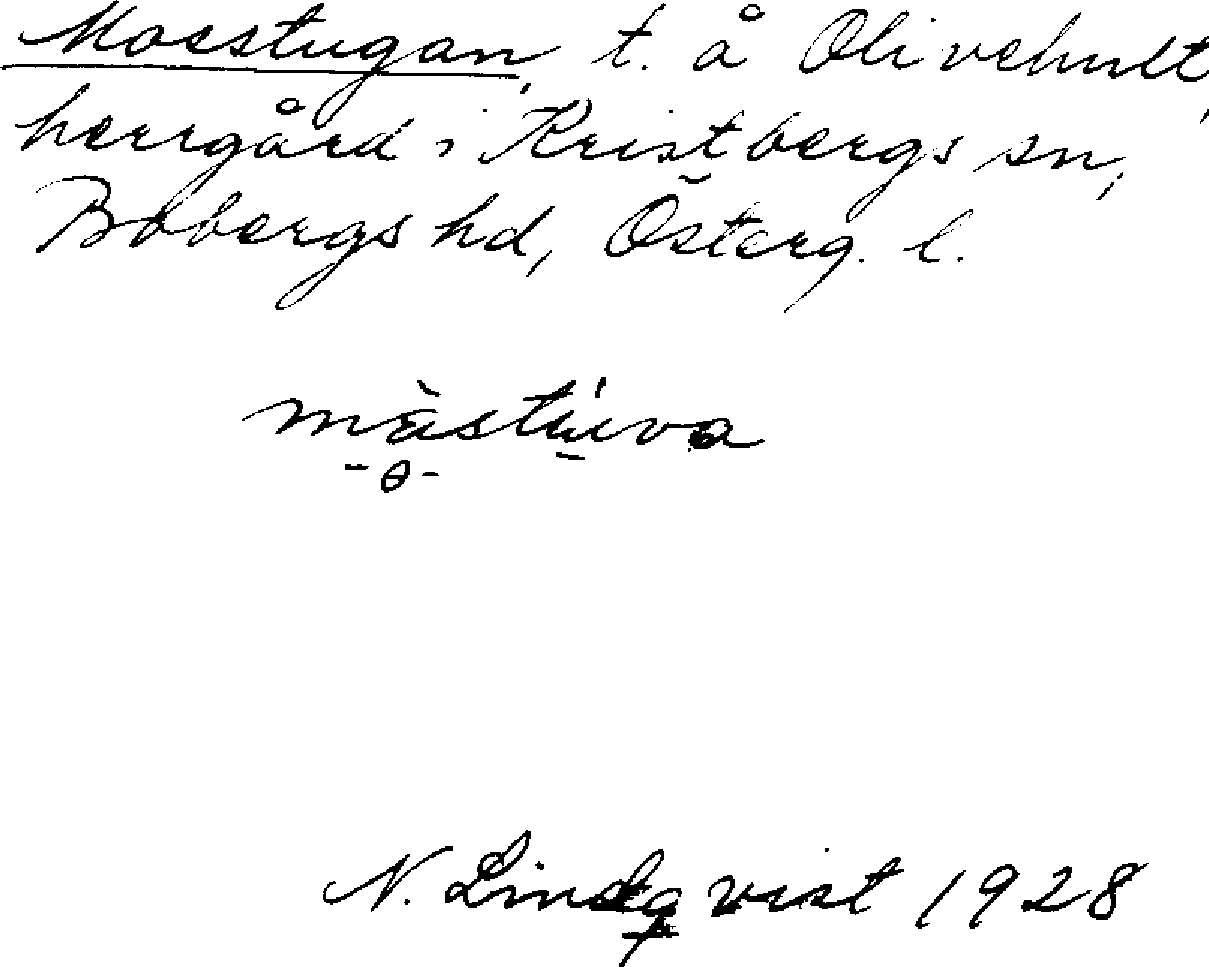 Mosstugan, t. å Olivehult,
herrgård i Kristbergs sn,
Bobergs hd, Österg. l.
màstúva
-o-
N. Lindqvist 1928